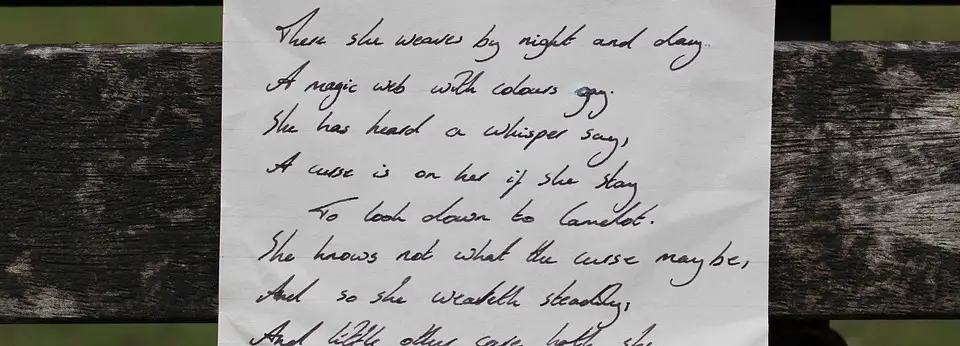 There she weaves by night and day
A magic web with colours gay.
She has heard a whisper say,
A curse is on her if she stay
To look down to Camelot.
She knows not what the curse may be,
And so she weaveth steadily,
And little other care hath she